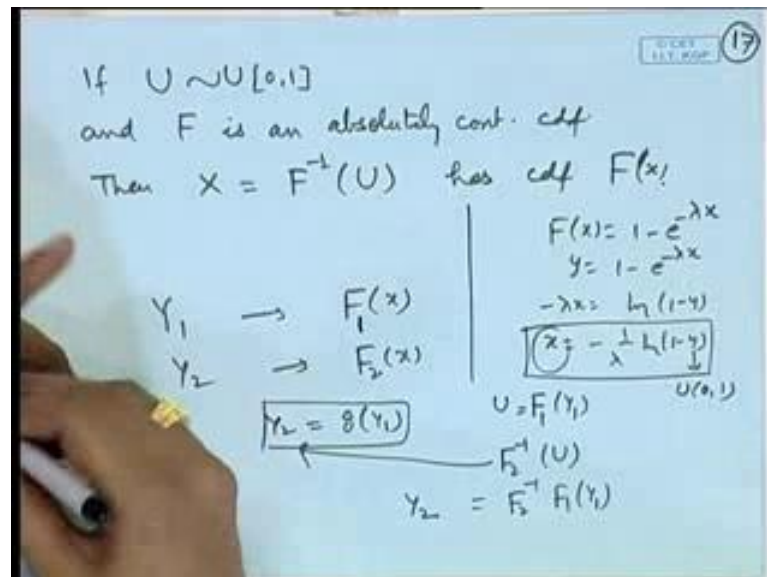 17
If U ~ U[0,1]
and F is an absolutely cont. cdf
Then X = F⁻¹(U) has cdf F(x)
F(x) = 1 - e^{-λx}
y = 1 - e^{-λx}
-λx = ln (1-y)
x = - 1/λ ln(1-y)
↓
U(0,1)
Y₁ → F₁(x)
Y₂ → F₂(x)
Y₂ = g(Y₁)
U = F₁(Y₁)
F₂⁻¹(U)
Y₂ = F₂⁻¹ F₁(Y₁)